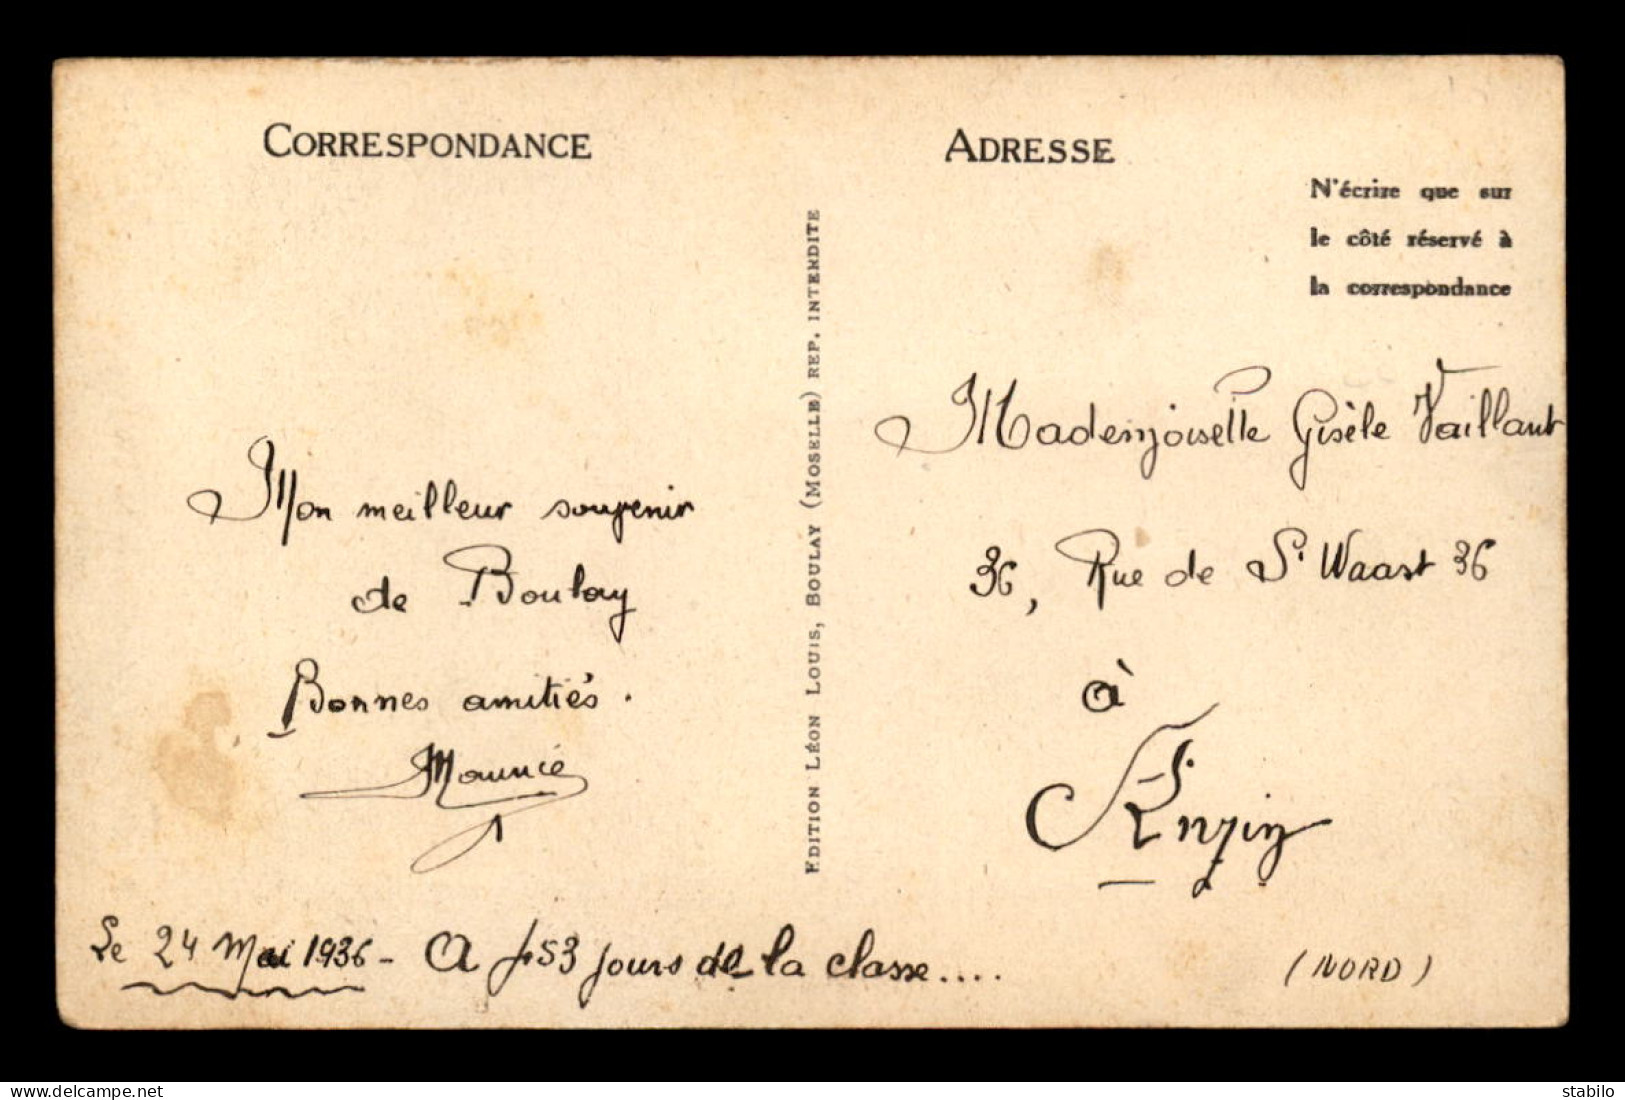 CORRESPONDANCE
Mon meilleur souvenir
de Boulay
Bonnes amitiés.
Maurice
Le 24 Mai 1936 - A 453 jours de la classe....
EDITION LÉON LOUIS, BOULAY (MOSELLE) REP. INTERDITE
ADRESSE
N'écrire que sur
le côté réservé à
la correspondance
Mademoiselle Gisèle Vaillant
36, Rue de St Waast 36
à
Anzin
(NORD)
www.delcampe.net
stabilo